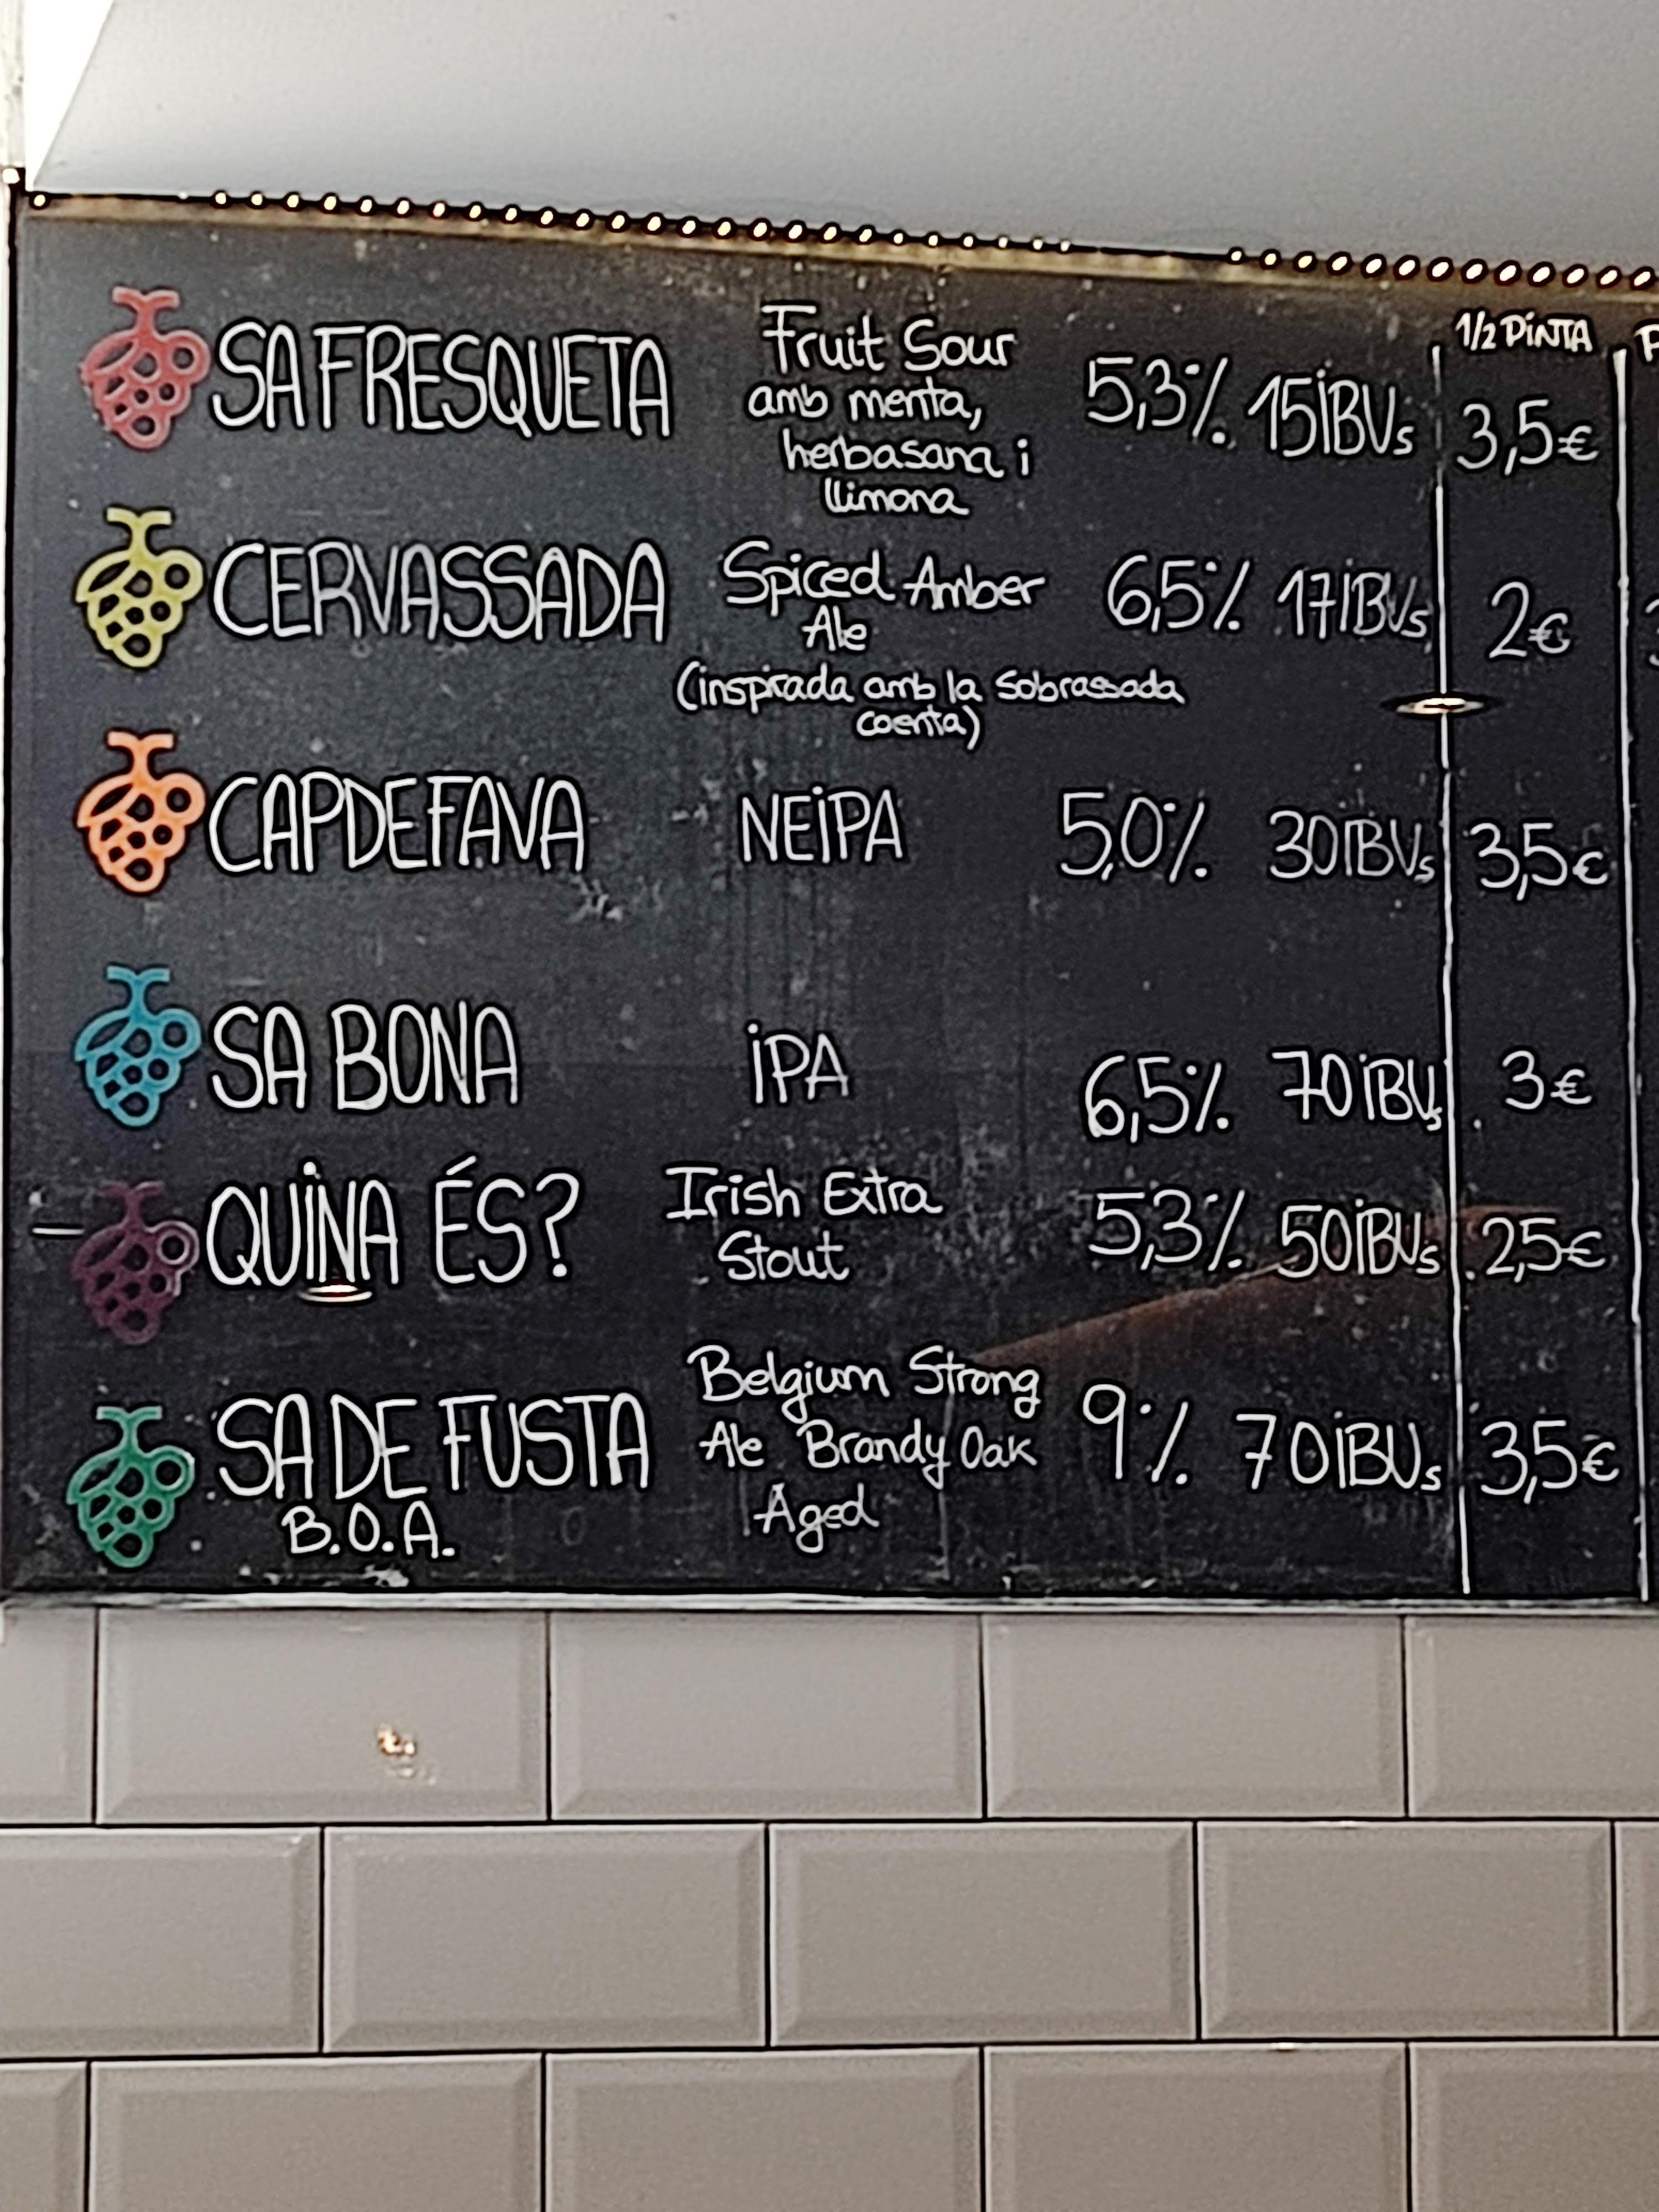 1/2 PINTA
SA FRESQUETA Fruit Sour 5,3% 15 IBUs 3,5€
amb menta,
herbasana i
llimona
CERVASSADA Spiced Amber 6,5% 17 IBUs 2€
Ale
(inspirada amb la Sobrassada
coenta)
CAPDEFAVA NEIPA 5,0% 30 IBUs 3,5€
SA BONA IPA 6,5% 70 IBUs 3€
QUINA ÉS? Irish Extra 5,3% 50 IBUs 2,5€
Stout
SA DE FUSTA Belgium Strong 9% 70 IBUs 3,5€
B.O.A. Ale Brandy Oak
Aged